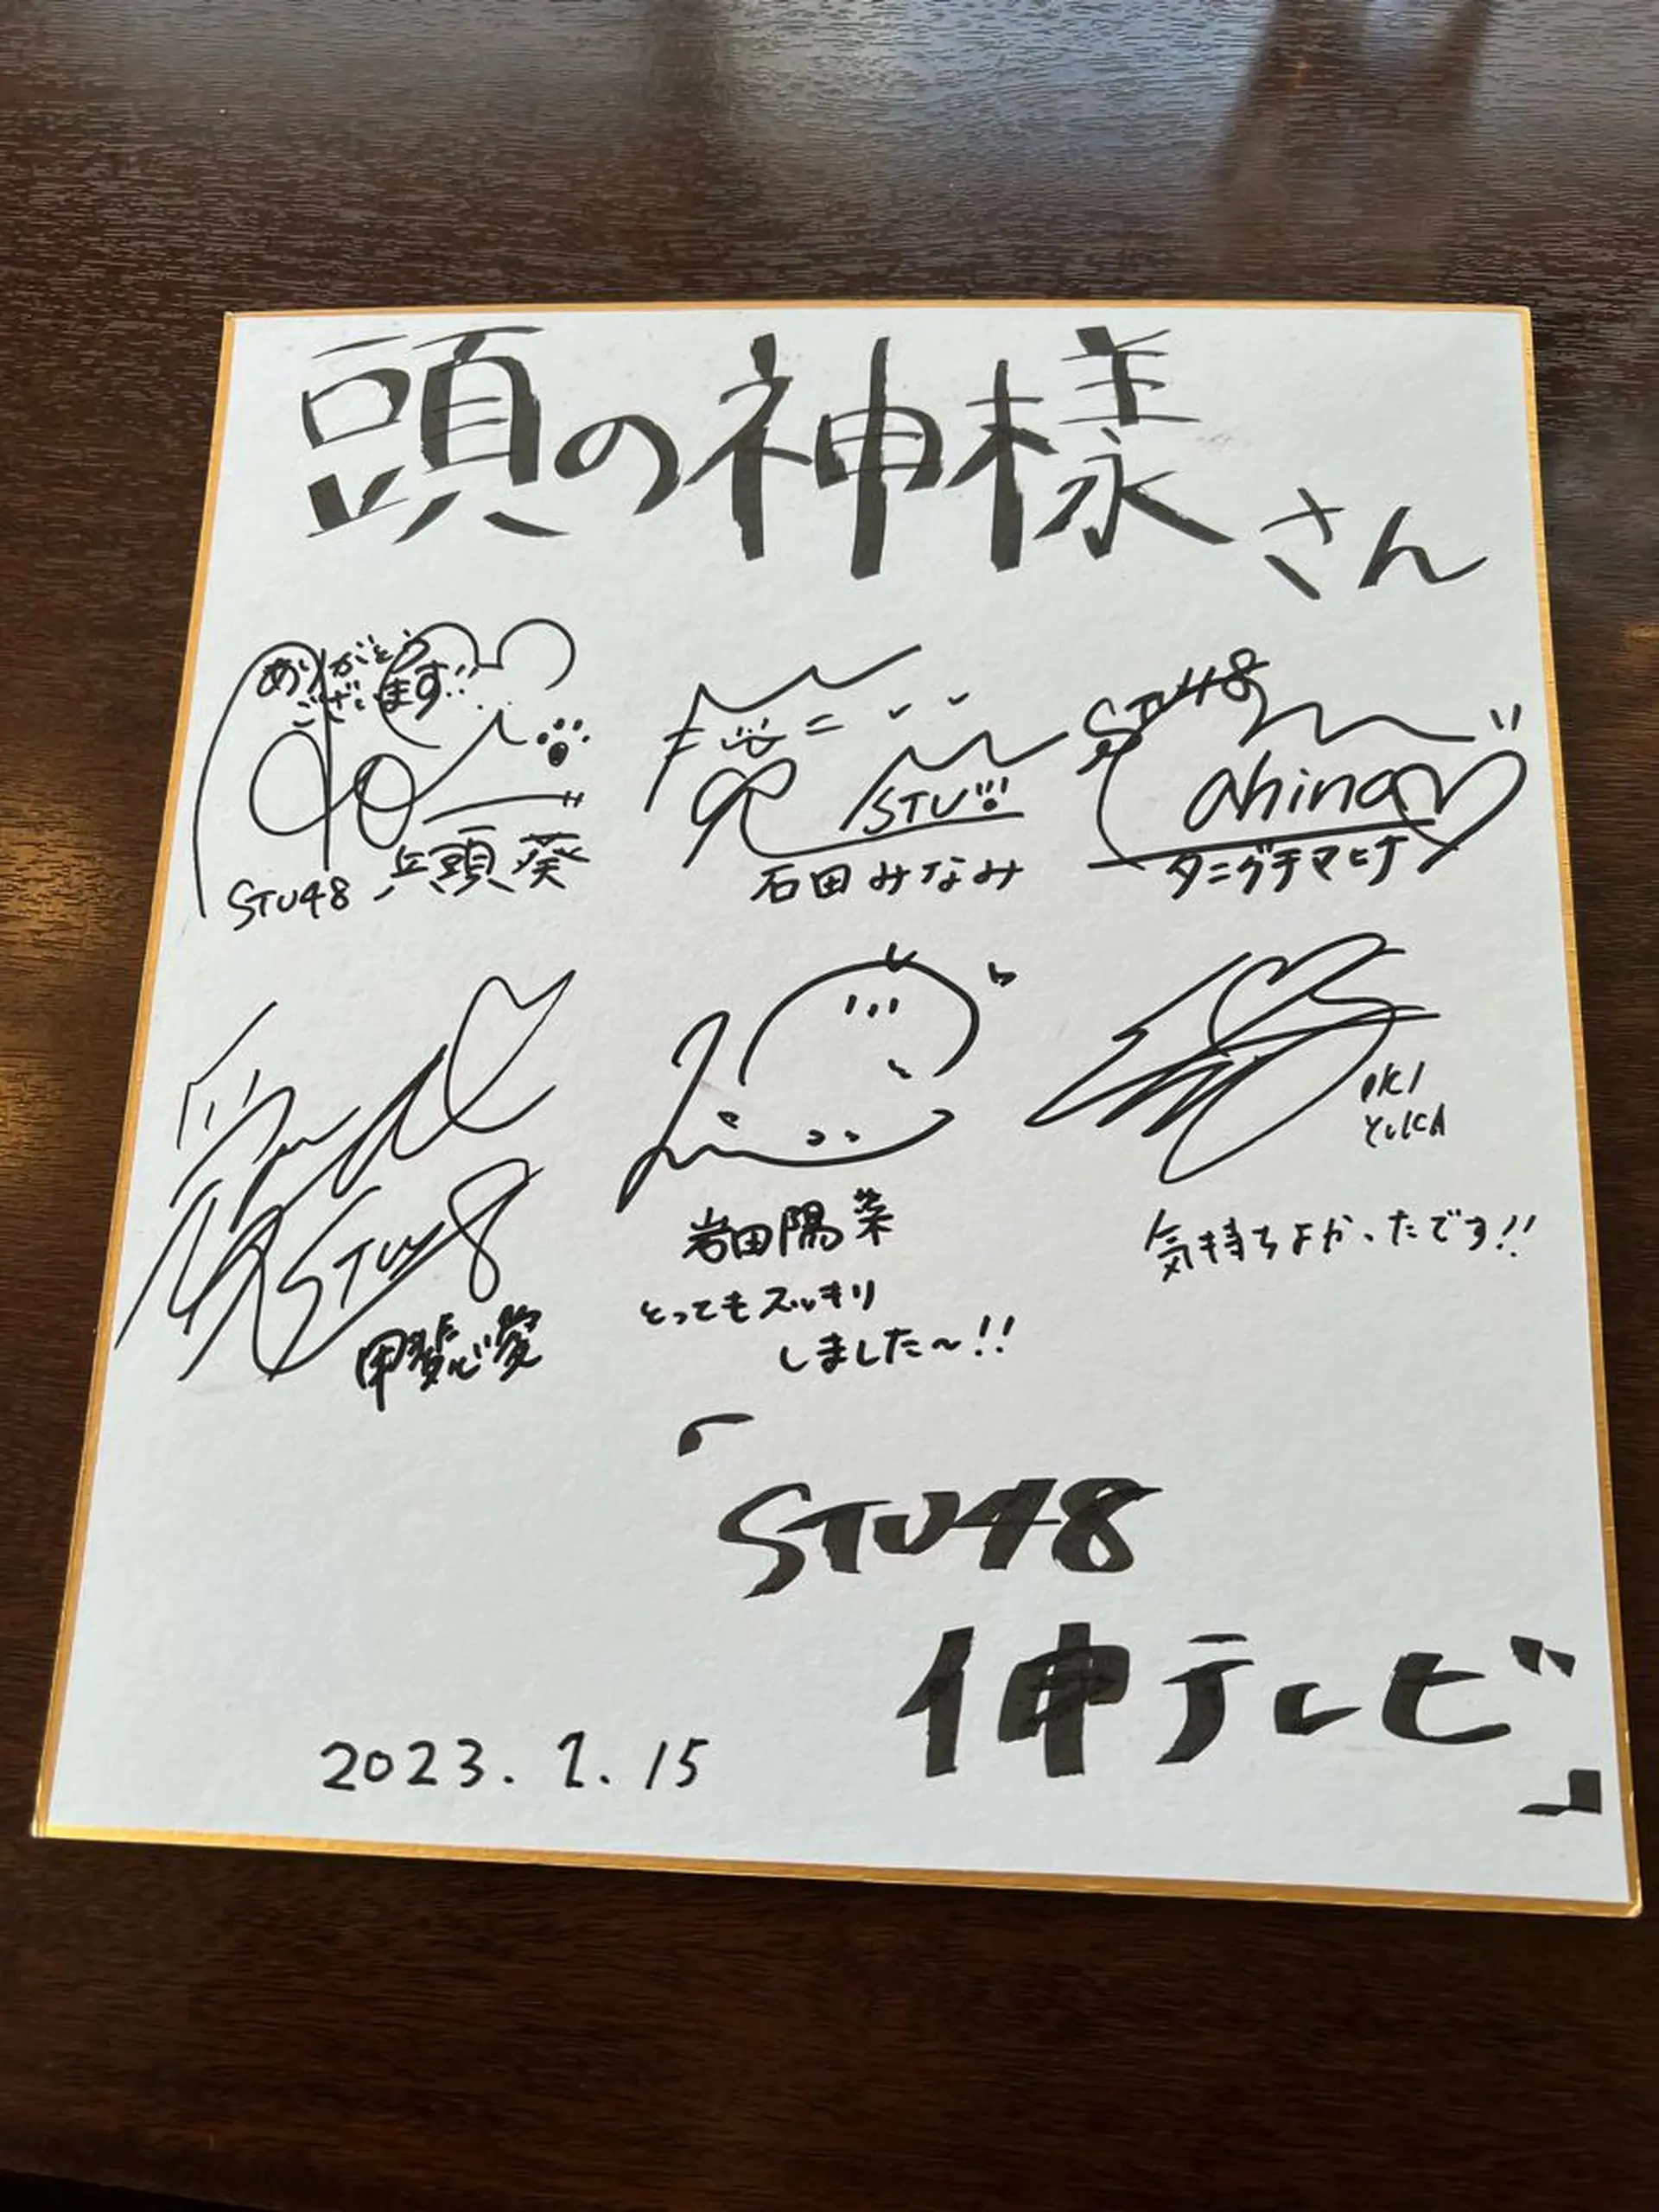 頭の神様さん
ありがとう
ございます!!
STU48 兵頭葵
STU
石田みなみ
STU48
ahina
タニグチマヒナ
STU48
甲斐心愛
岩田陽菜
とってもスッキリ
しました〜!!
OKI
YUKA
気持ちよかったです!!
「STU48
伸テレビ」
2023.2.15